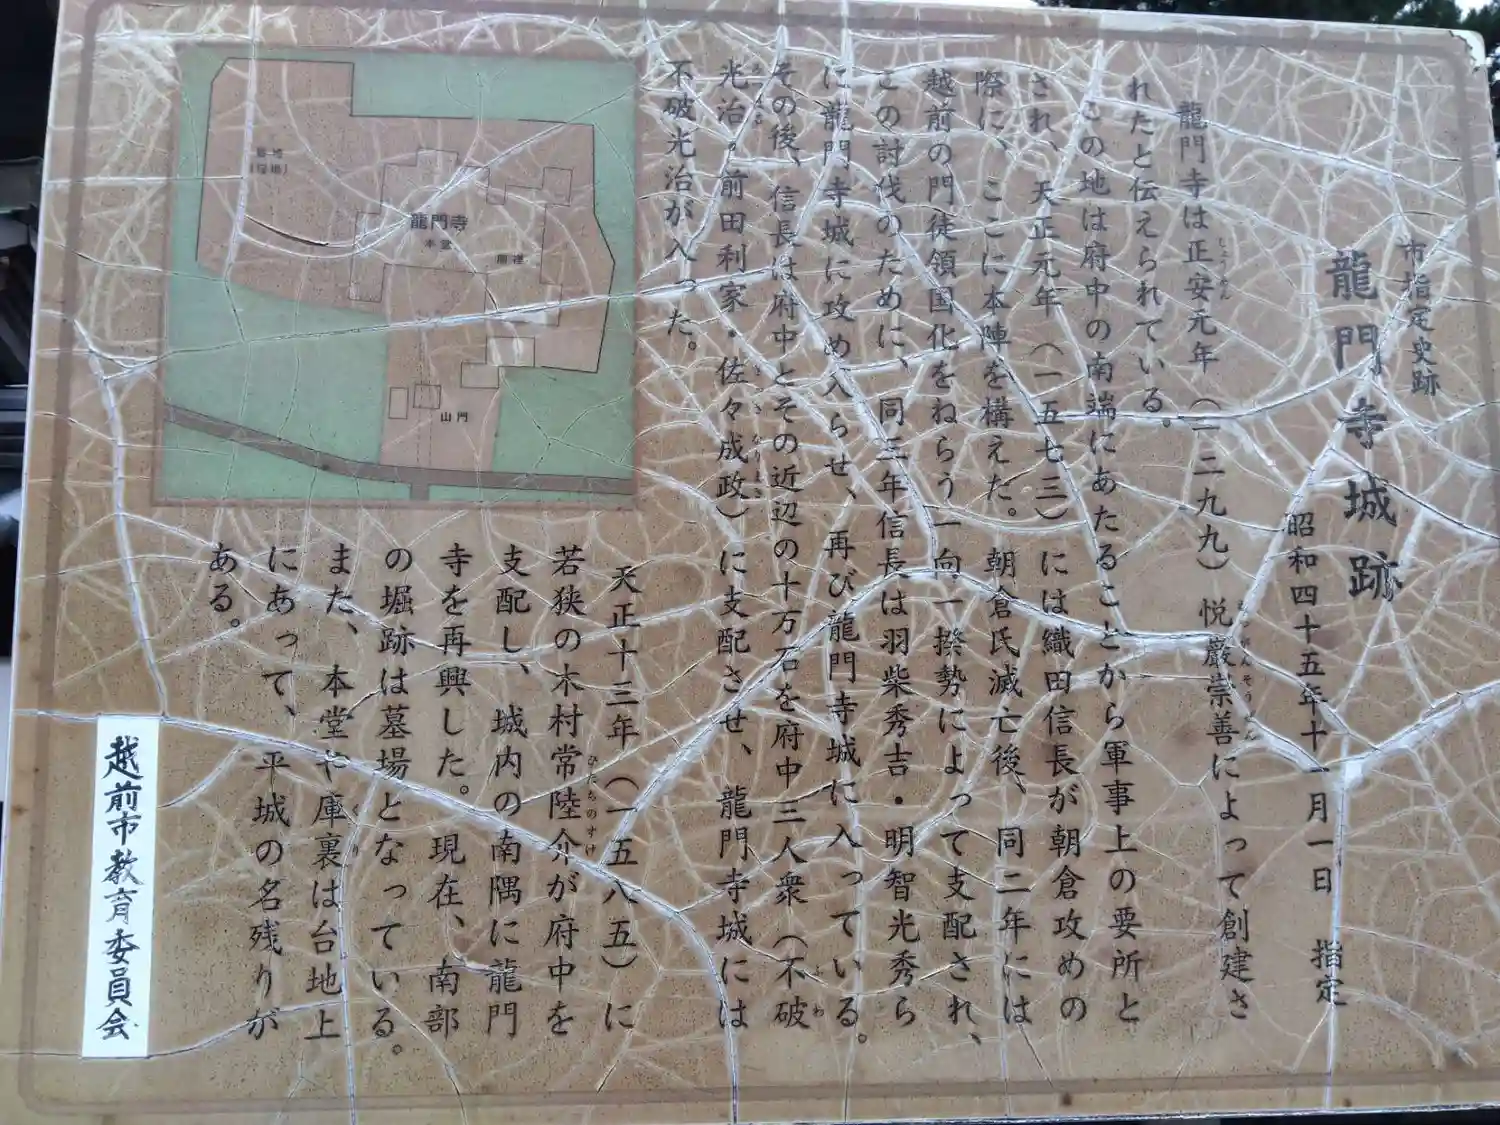 市指定史跡
龍門寺城跡
昭和四十五年十一月一日 指定
龍門寺は正安元年(一二九九)悦巖崇善によって創建さ
れたと伝えられている。
この地は府中の南端にあたることから軍事上の要所と
され、天正元年(一五七三)には織田信長が朝倉攻めの
際に、ここに本陣を構えた。朝倉氏滅亡後、同二年には
越前の門徒領国化をねらう一向一揆勢によって支配され、
この討伐のために、同三年信長は羽柴秀吉・明智光秀ら
に龍門寺城に攻め入らせ、再び龍門寺城に入っている。
その後、信長は府中とその近辺の十万石を府中三人衆(不破
光治・前田利家・佐々成政)に支配させ、龍門寺城には
不破光治が入った。
天正十三年(一五八五)に
若狭の木村常陸介が府中を
支配し、城内の南隅に龍門
寺を再興した。現在、南部
の堀跡は墓場となっている。
また、本堂や庫裏は台地上
にあって、平城の名残りが
ある。
越前市教育委員会
龍門寺
本堂
庫裡
山門